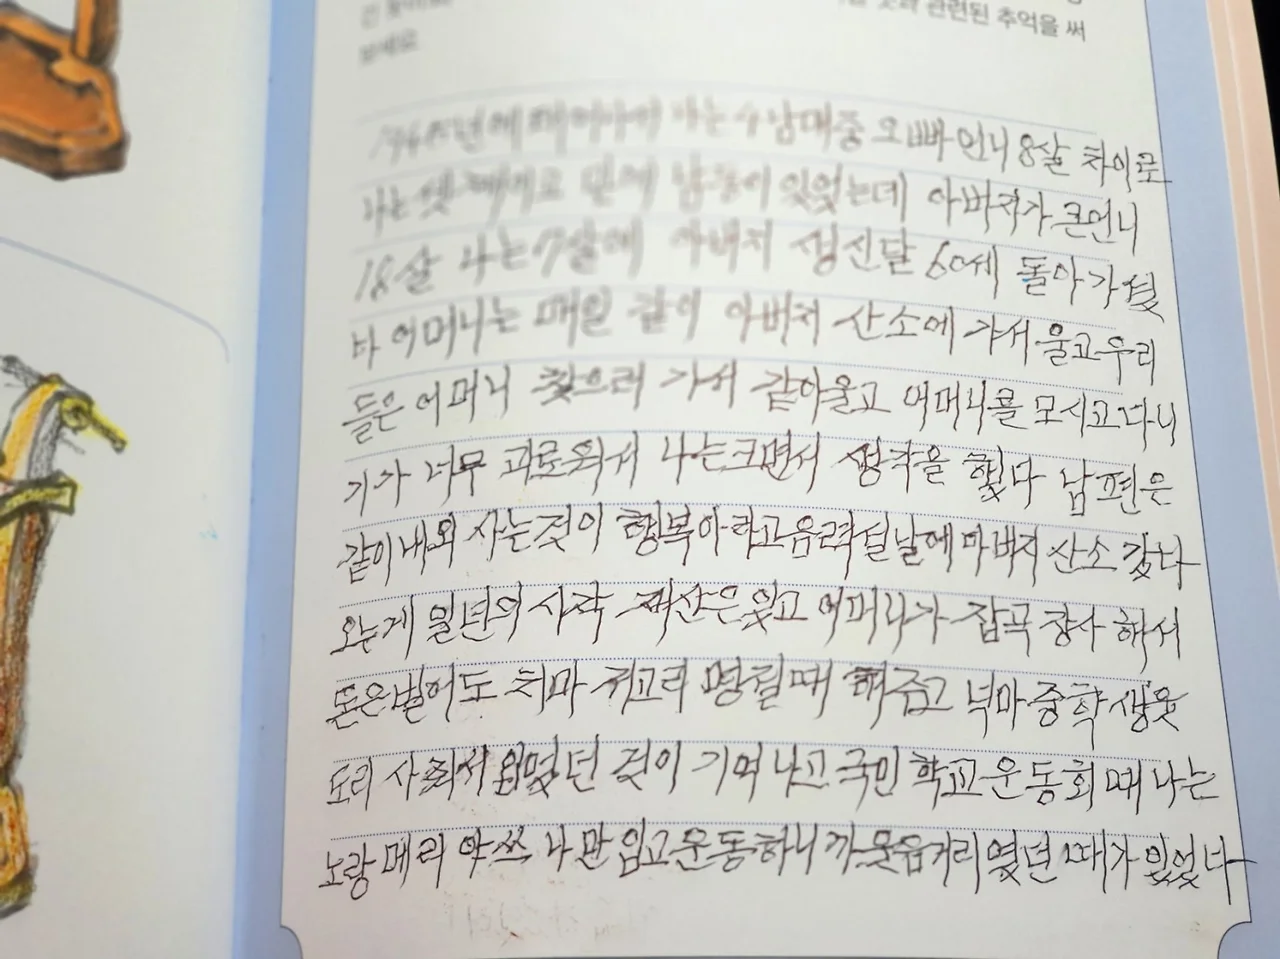 관련된 추억을 써
보세요
나는 4남매중 오빠 언니 8살 차이로
나는 밑에 남동이 있었는데 아버지가 큰언니
18살 나는 7살에 아버지 생신달 60세 돌아가셨
다 어머니는 매일 같이 아버지 산소에 가서 울고 우리
들은 어머니 찾으러 가서 같이 울고 어머니를 모시고 다니
기가 너무 괴로워서 나는 크면서 생각을 했다 남편은
같이 내외 사는것이 행복이라고 음력설날에 아버지 산소 갔다
오는게 일년의 시작 재산은 있고 어머니가 잡곡 장사 해서
돈은 벌어도 치마 저고리 명절때 해주고 넉마 중학생옷
도리 사 입혔던 것이 기억나고 국민학교 운동회 때 나는
노랑 메리야쓰 나만 입고 운동하니 까 웃음거리였던 때가 있었다